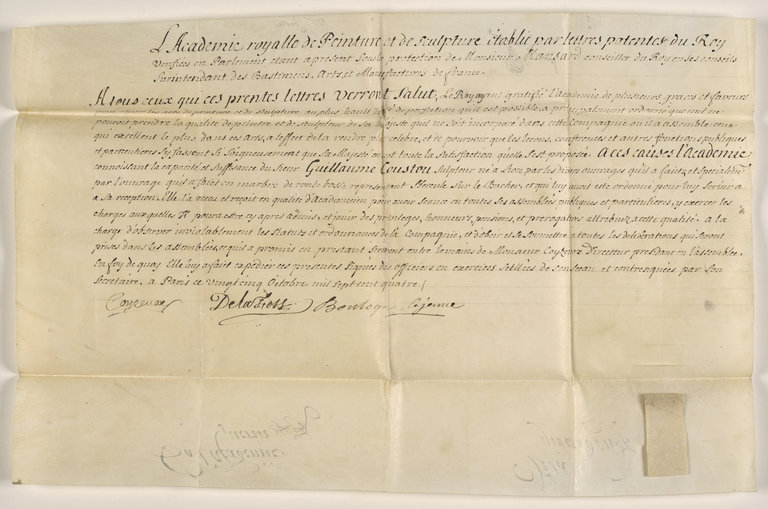 L'Academie royalle de Peinture et de Sculpture établie par lettres patentes du Roy
verifiées en Parlement etant a présent sous la protection de Monsieur Mansard conseiller du Roy en ses conseils
Surintendant des Bastimens, Arts et Manufactures de france.
A tous ceux qui ces p̃ntes lettres verront Salut, Le Roy ayant gratifié l'academie de plusieurs graces et faveurs
de peinture et de sculpture au plus haut degré de perfection qu'il est possible, a principalement ordonné que ceux qui
pouront prendre la qualité de peintre et de sculpteur de Sa Majesté qu'il ne soit incorporé dans cette Compagnie ou il a assemblé ceux
qui excellent le plus dans ces Arts, a l'effect de la rendre plus celebre, et de pourvoir que les leçons, conferences et autres fonctions publiques
et particulieres s'y fassent si soigneusement que Sa Majesté en ait toute la satisfaction qu'elle s'est proposée. A ces causes l'Academie
connoissant la capacité et suffisance du Sieur Guillaume Coustou Sculpteur né a Lion par les divers ouvrages qu'il a faits, et specialem̃t
par l'ouvrage qu'il a fait en marbre de ronde bosse representant Hercule sur le Bucher, et qui luy avoit esté ordonné pour luy servir a
a sa reception. Elle l'a receu et reçoit en qualité d'Academicien pour avoir seance en toutes ses assemblées publiques et particulieres, y exercer les
charges auxquelles il poura estre cy apres admis, et jouir des privileges, honneurs, pensions, et prerogatives attribuez a cette qualité. a la
charge d'observer inviolablement les statuts et ordonnances de la Compagnie, et d'obeir et se soumettre a toutes les deliberations qui seront
prises dans les assemblées, ce qu'il a promis en prestant serment entre les mains de Monsieur Coyzevox Directeur presidant en l'assemblée.
En foy de quoy Elle luy a fait expedier ces presentes signées des officiers en exercice scellées de son sceau et contresignées par son
Secretaire, a Paris ce vingt cinq Octobre mil sept cent quatre.
Coyzevox De la Foss Boulogne le jeune